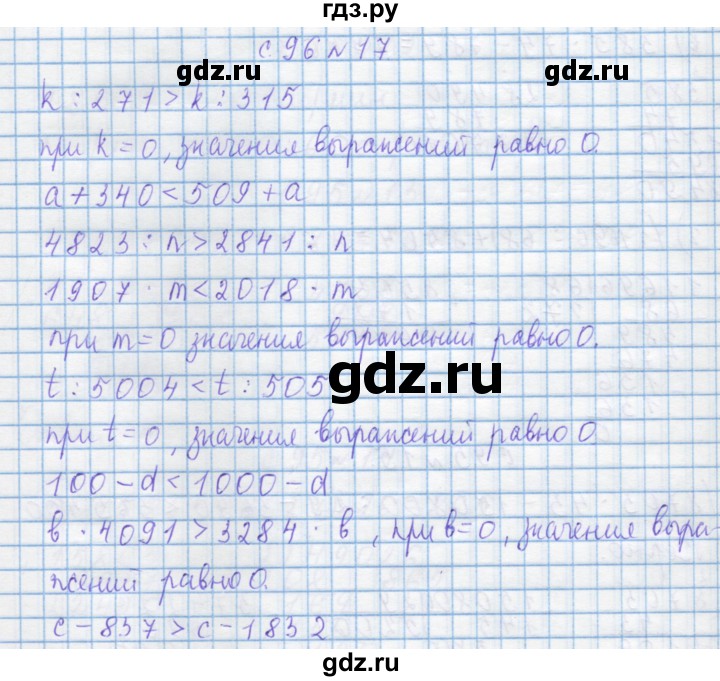 гдз.ру
с 96 n 17
gdz.ru gdz.ru
k : 271 > k : 315
при k = 0, значения выражений равно 0.
a + 340 < 509 + a
4823 : n > 2841 : n
1907 · m < 2018 · m
при m = 0 значения выражений равно 0.
gdz.ru
t : 5004 < t : 505
при t = 0, значения выражений равно 0
100 - d < 1000 - d
в · 4091 > 3284 · в, при в = 0, значения выра-
жений равно 0.
c - 837 > c - 1832
gdz.ru